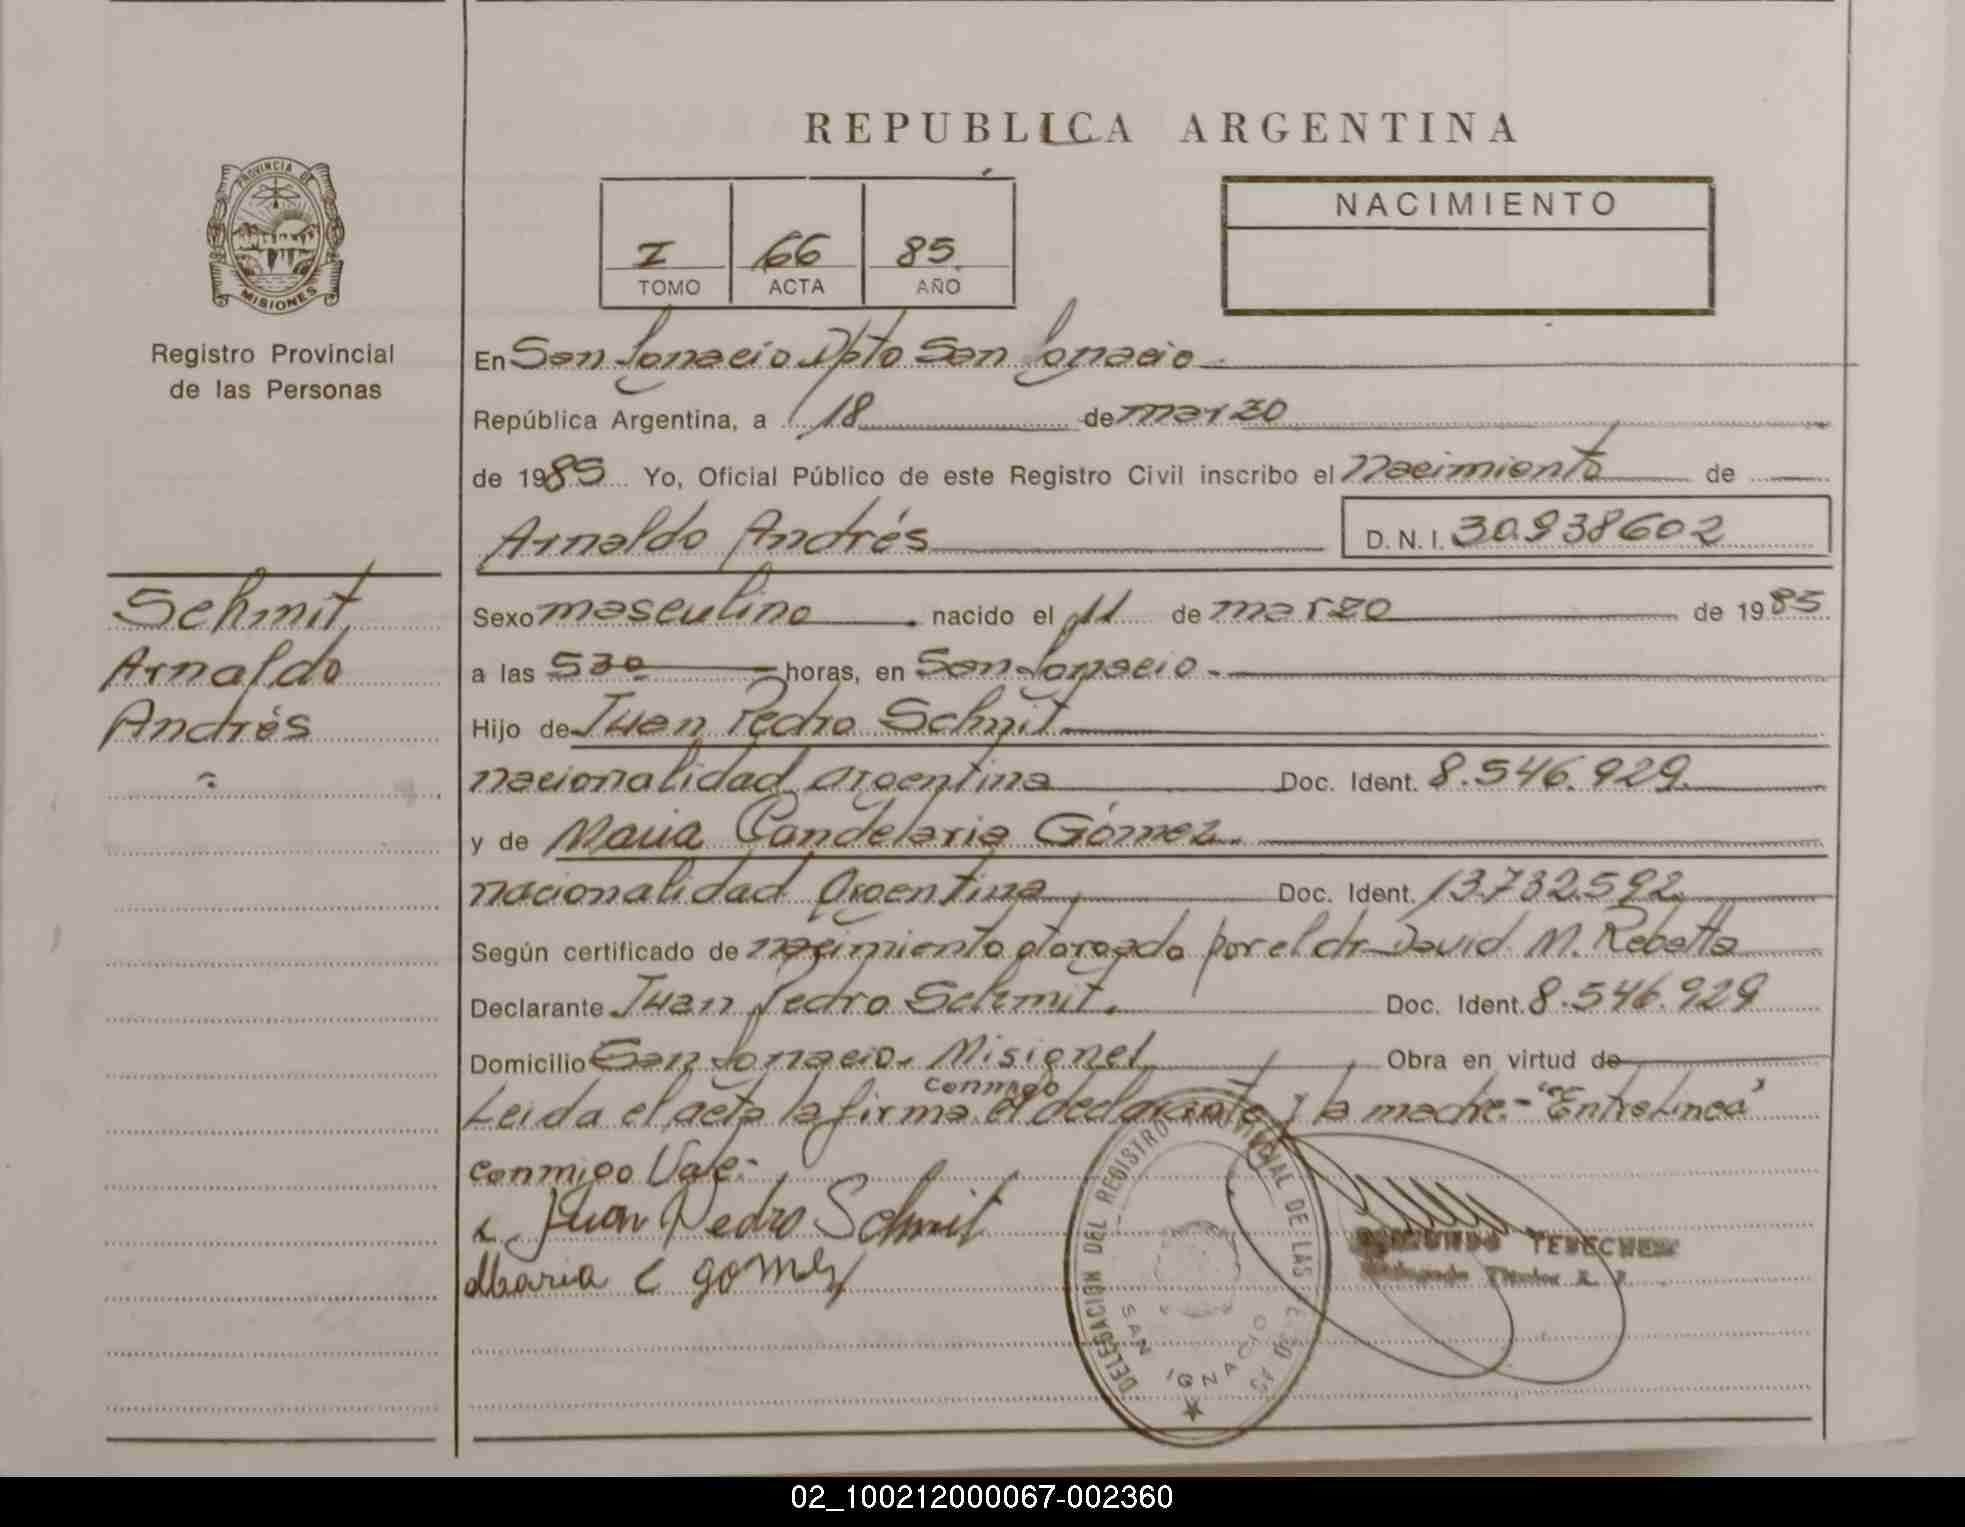 REPUBLICA ARGENTINA
PROVINCIA DE
MISIONES
Registro Provincial
de las Personas
I 66 85
TOMO ACTA AÑO
NACIMIENTO
En San Ignacio Dpto San Ignacio
República Argentina, a 18 de marzo
de 1985 Yo, Oficial Público de este Registro Civil inscribo el Nacimiento de
Arnaldo Andrés D.N.I. 30.938602
Schmit
Arnaldo
Andrés
Sexo masculino nacido el 11 de marzo de 1985
a las 530 horas, en San Ignacio
Hijo de Juan Pedro Schmit
nacionalidad argentina Doc. Ident. 8.546.929
y de Maria Candelaria Gómez
nacionalidad Argentina Doc. Ident. 13.732.592
Según certificado de nacimiento otorgado por el dr David M. Rebatta
Declarante Juan Pedro Schmit. Doc. Ident. 8.546.929
Domicilio San Ignacio. Misiones Obra en virtud de
conmigo
Leida el acta la firma el declarante y la madre.- "Entrelinea"
conmigo Vale:-
Juan Pedro Schmit
Maria C gomez
DELEGACION DEL REGISTRO PROVINCIAL DE LAS PERSONAS
SAN IGNACIO
02_100212000067-002360